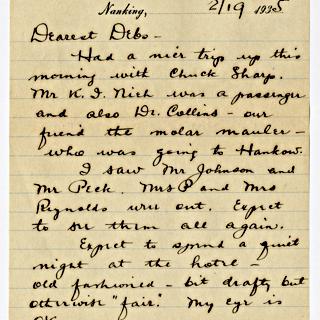 Nanking, 2/19 1935
Dearest Debo-
Had a nice trip up this
morning with Chuck Sharp.
Mr K. I. Nieh was a passenger
and also Dr. Collins - our
friend the molar mauler -
who was going to Hankow.
I saw Mr Johnson and
Mr Peck. Mrs P and Mrs
Reynolds were out. Expect
to see them all again.
Expect to spend a quiet
night at the hotel -
old fashioned - bit drafty but
otherwise "fair". My eye is
OK